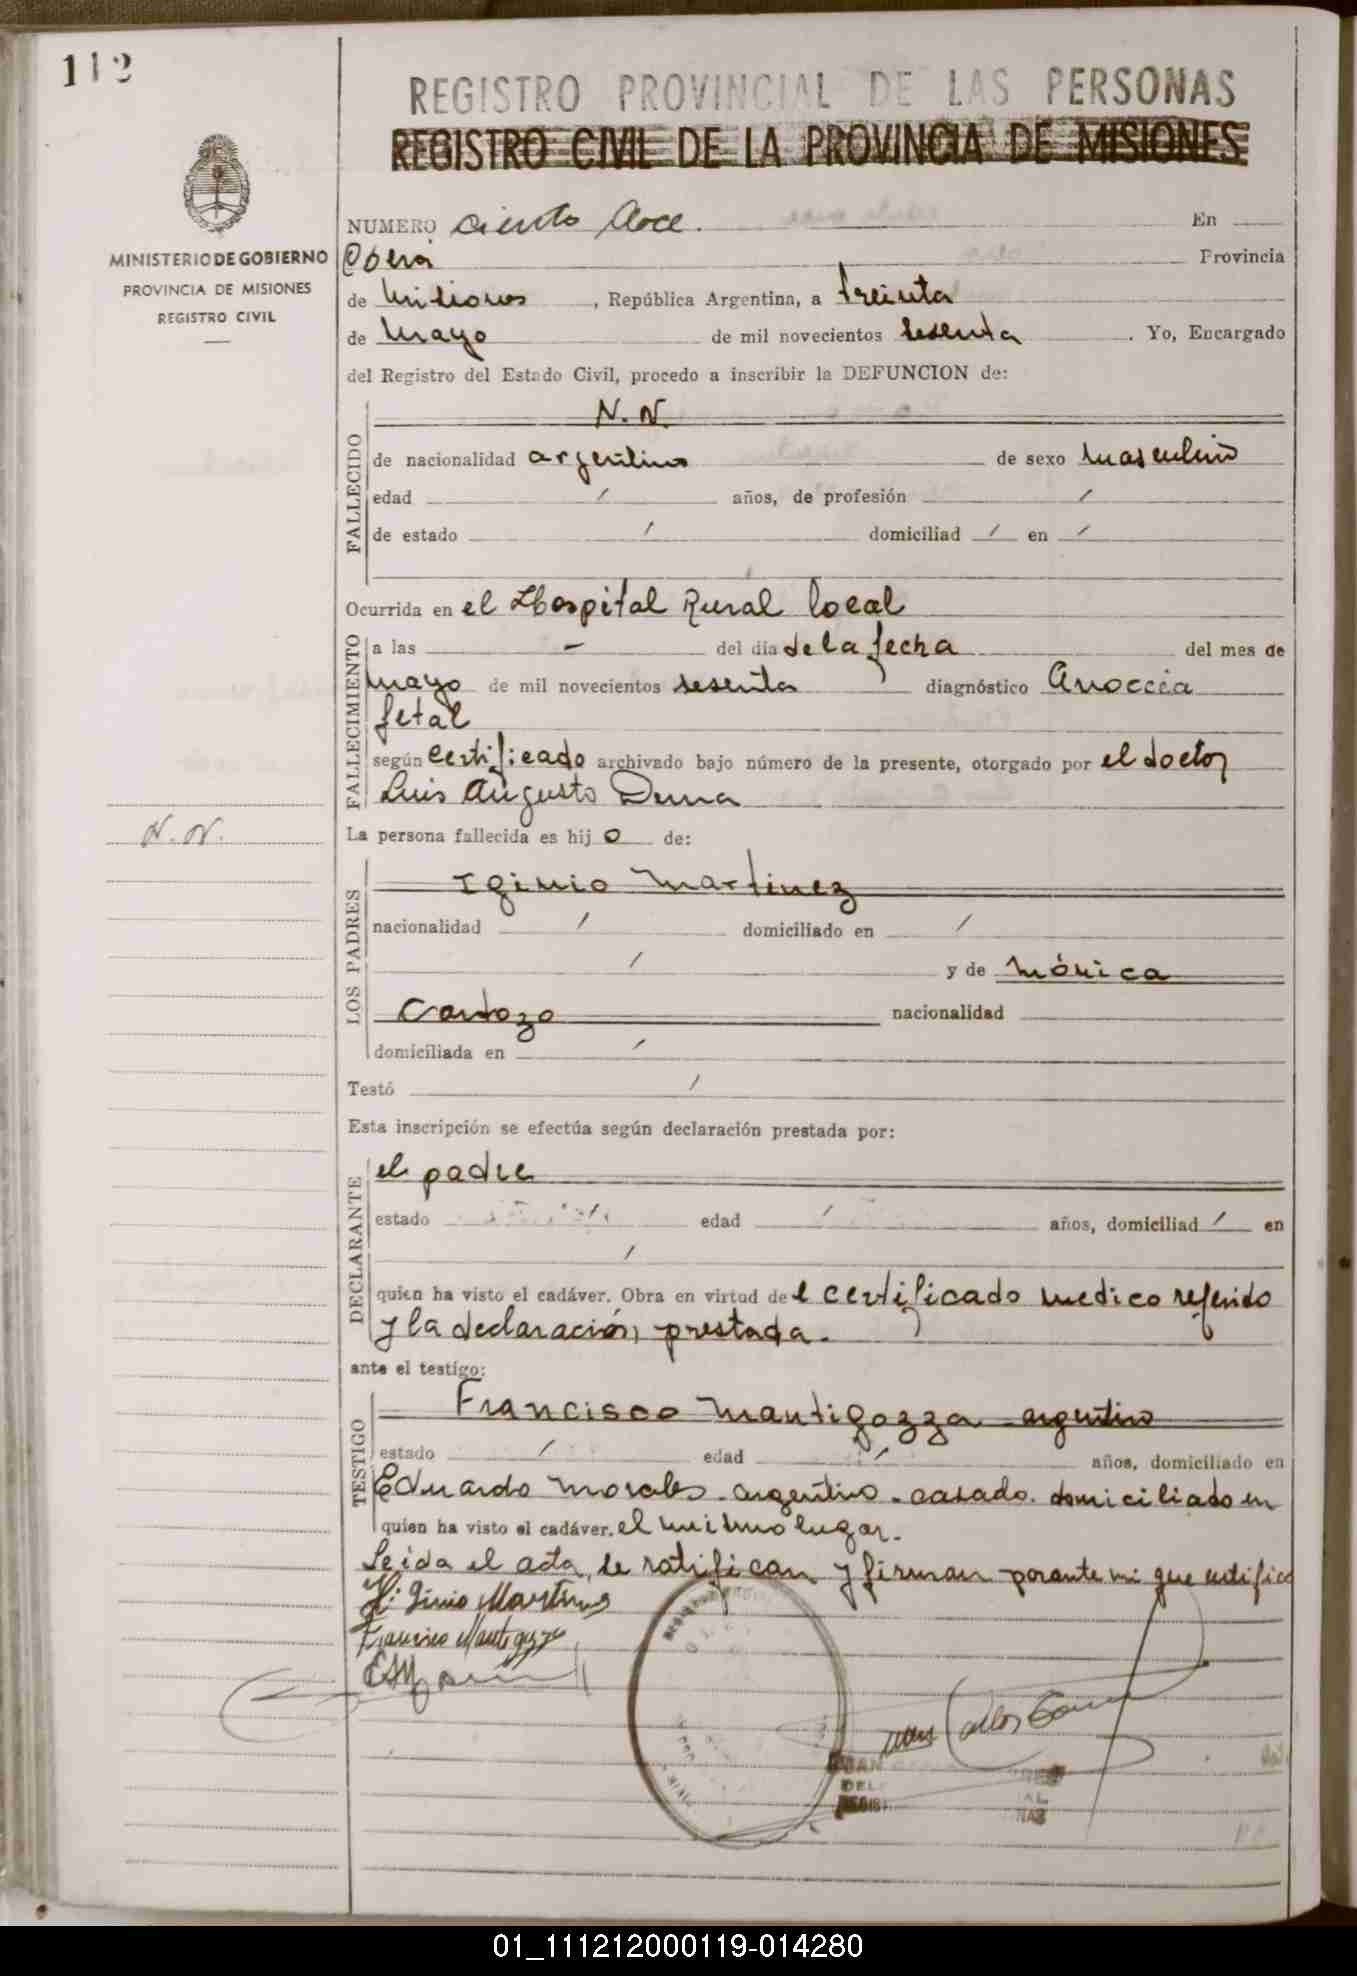 112
REGISTRO PROVINCIAL DE LAS PERSONAS
REGISTRO CIVIL DE LA PROVINCIA DE MISIONES
MINISTERIO DE GOBIERNO
PROVINCIA DE MISIONES
REGISTRO CIVIL
NUMERO ciento doce. En
Oberá Provincia
de Misiones, República Argentina, a treinta
de Mayo de mil novecientos sesenta. Yo, Encargado
del Registro del Estado Civil, procedo a inscribir la DEFUNCION de:
FALLECIDO
N. N.
de nacionalidad argentino de sexo masculino
edad / años, de profesión /
de estado / domiciliad / en /
Ocurrida en el Hospital Rural local
FALLECIMIENTO
a las - del día de la fecha del mes de
mayo de mil novecientos sesenta diagnóstico Anoccia
fetal
según certificado archivado bajo número de la presente, otorgado por el doctor
Luis Augusto Derna
N. N.
La persona fallecida es hijo de:
LOS PADRES
Iginio Martinez
nacionalidad / domiciliado en /
/ y de Mónica
Cardozo nacionalidad
domiciliada en /
Testó /
Esta inscripción se efectúa según declaración prestada por:
DECLARANTE
el padre
estado edad / años, domiciliad / en
/
quien ha visto el cadáver. Obra en virtud del certificado medico referido
y la declaración, prestada.
ante el testigo:
TESTIGO
Francisco Mantigozza argentino
estado / edad / años, domiciliado en
Eduardo Morales - argentino - casado. domiciliado en
quien ha visto el cadáver. el mismo lugar.
Leida el acta, se ratifican y firman por ante mi que certifico
Hi Ginio Martinez
Francisco Mantigozza
Juan Carlos
JUAN
DEL
REGIS
01_111212000119-014280